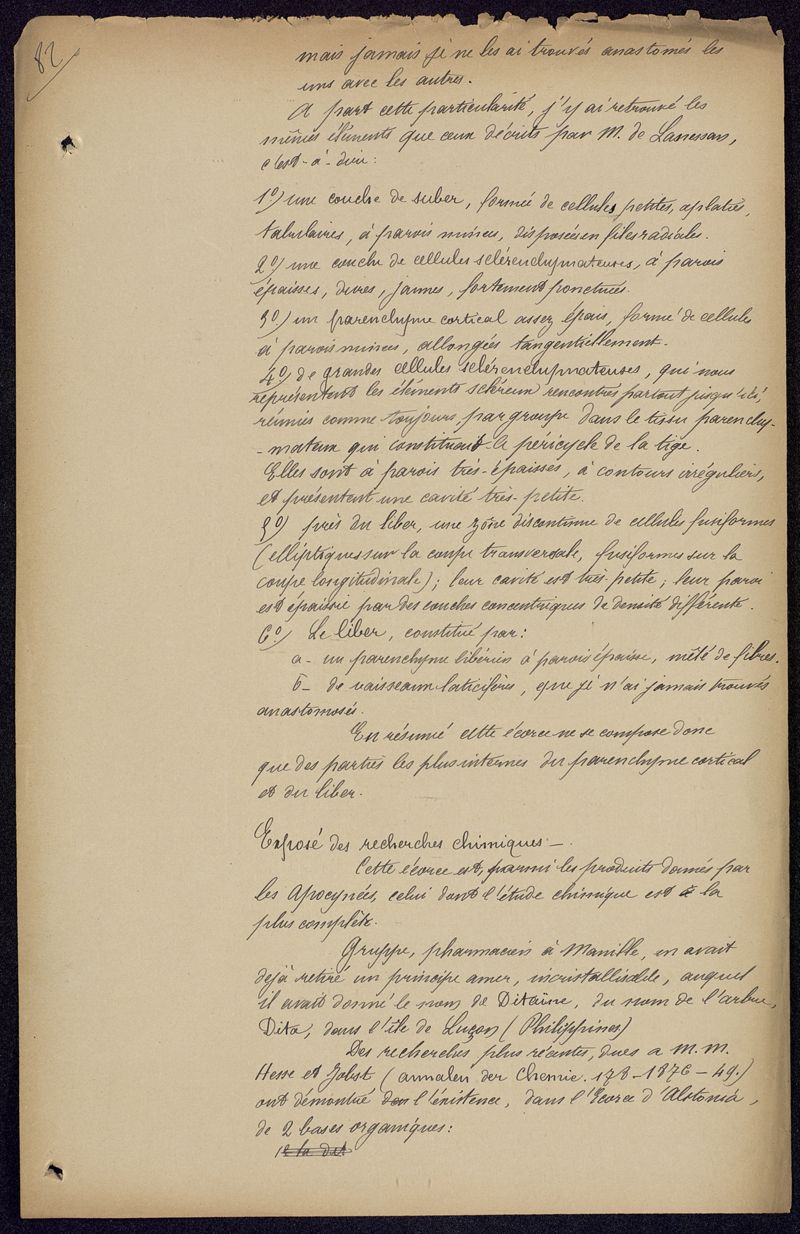 82
mais jamais je ne les ai trouvés anastomés les
uns avec les autres.
A part cette particularité, j'y ai retrouvé les
mêmes éléments que ceux décrits par M. de Lanessan,
c'est-à-dire :
1º) une couche de suber, formée de cellules petites, aplaties,
tabulaires, à parois minces, disposées en files radiales.
2º) une couche de cellules sclérenchymateuses, à parois
épaisses, dures, jaunes, fortement ponctuées.
3º) un parenchyme cortical assez épais, formé de cellules
à parois minces, allongées tangentiellement.
4º) de grandes cellules sclérenchymateuses, qui nous
représentent les éléments scléreux rencontrés partout jusqu'ici,
réunies comme toujours, par groupe dans le tissu parenchy-
-mateux qui constituait le péricycle de la tige.
Elles sont à parois très-épaisses, à contours irréguliers,
et présentent une cavité très-petite.
5º) près du liber, une zône discontinue de cellules fusiformes
(elliptiques sur la coupe transversale, fusiformes sur la
coupe longitudinale) ; leur cavité est très-petite ; leur paroi
est épaissie par des couches concentriques de densité différente.
6º) Le liber, constitué par :
a - un parenchyme libérien à parois épaisse, mêlé de fibres.
b - de vaisseaux laticifères, que je n'ai jamais trouvés
anastomosés.
En résumé cette écorce ne se compose donc
que des parties les plus internes du parenchyme cortical
et du liber.
Exposé des recherches chimiques. -
Cette écorce est, parmi les produits donnés par
les Apocynées, celui dont l'étude chimique est la
plus complète.
Gruppe, pharmacien à Manille, en avait
déjà retiré un principe amer, incristallisable, auquel
il avait donné le nom de Ditaïne, du nom de l'arbre,
Dita, dans l'île de Luçon (Philippines)
Des recherches plus récentes, dues a M.M.
Hesse et Jobst (annalen der Chemie. 178 - 1876 - 49.)
ont démontré l'existence, dans l'Ecorce d'Alstonia,
de 2 bases organiques :